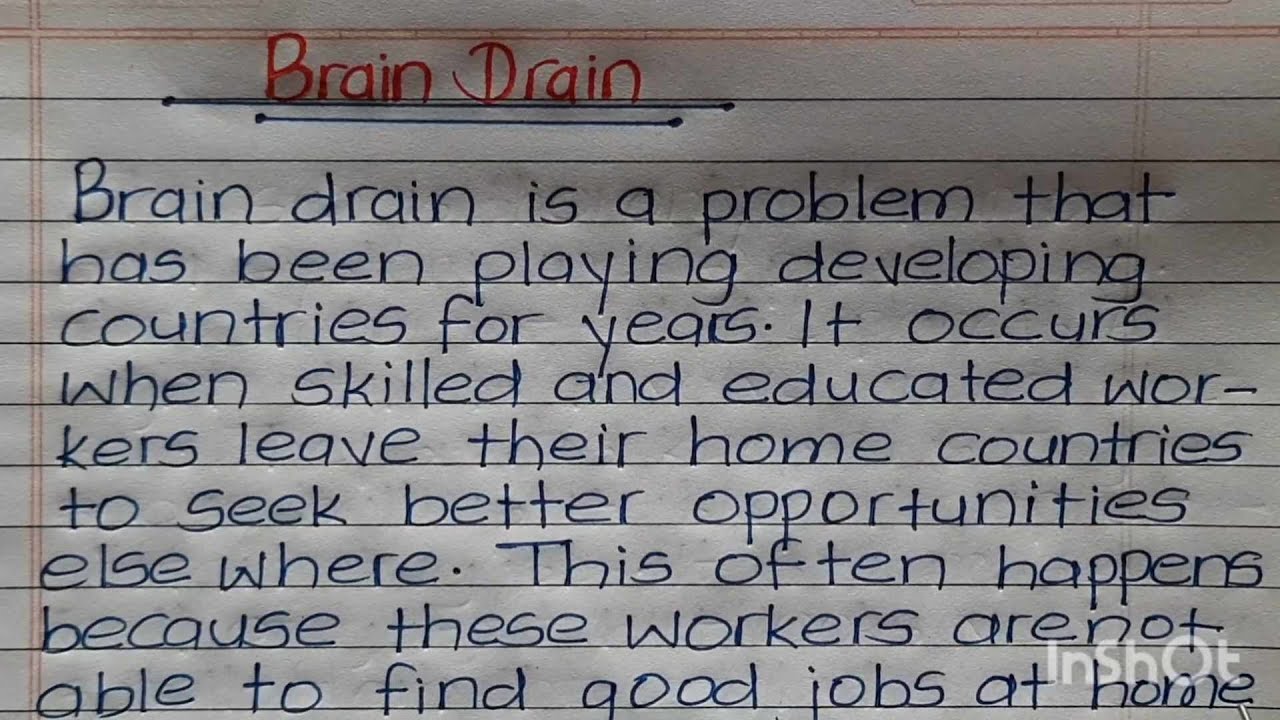 Brain Drain
Brain drain is a problem that
has been playing developing
countries for years. It occurs
when skilled and educated wor-
kers leave their home countries
to seek better opportunities
else where. This often happens
because these workers are not
able to find good jobs at home
InShOt